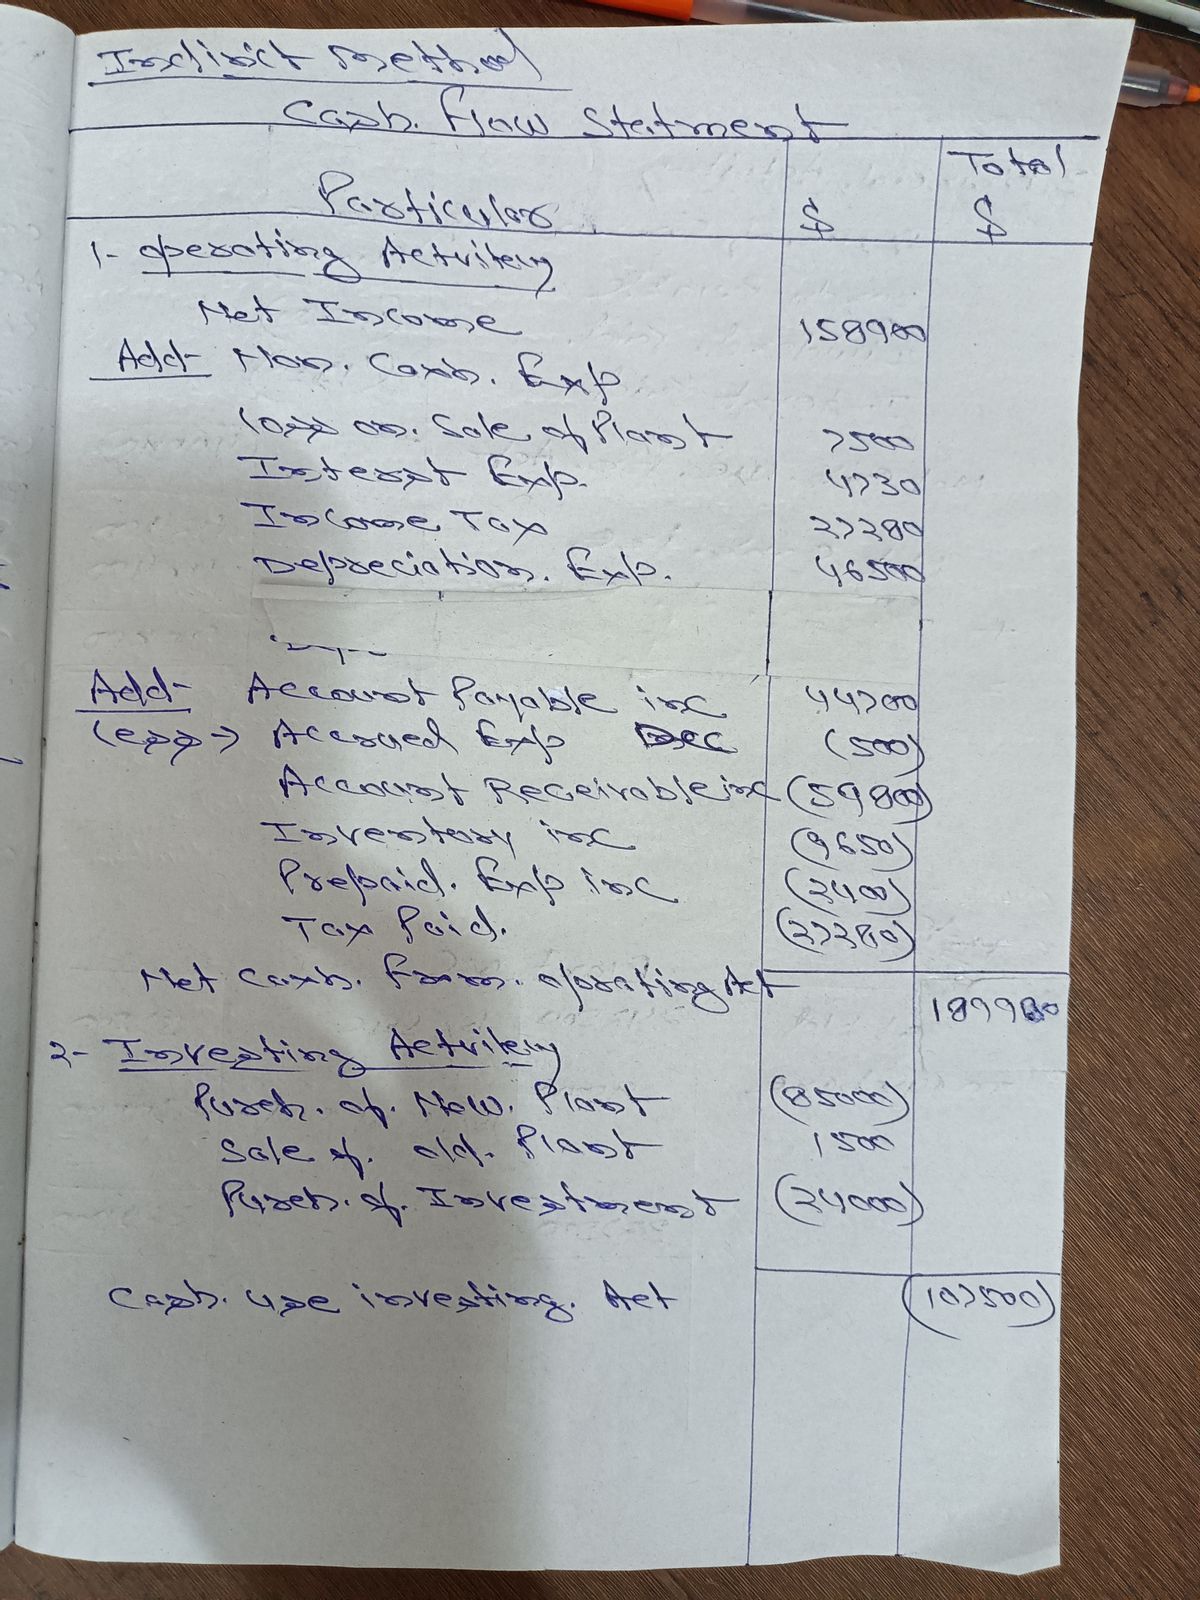 Indirict Method
Cash. Flow Statment
Particular $ Total $
1- operating Activitey
Net Income 158900
Add- Non. Cash. Exp
Loss on. Sale of Plant 7500
Interest Exp. 4730
Income Tax 27280
Depreciation. Exp. 46500
Add- Account Payable inc 44700
Less→ Accrued Exp Dec (500)
Account Receivable inc (59800)
Inventory inc (9650)
Prepaid. Exp inc (2400)
Tax Paid. (27280)
Net Cash. From. oprating Act 189980
2- Investing Activitey
Purch. of. New. Plant (85000)
Sale of. old. Plant 1500
Purch. of. Investment (24000)
Cash. use investing. Act (107500)